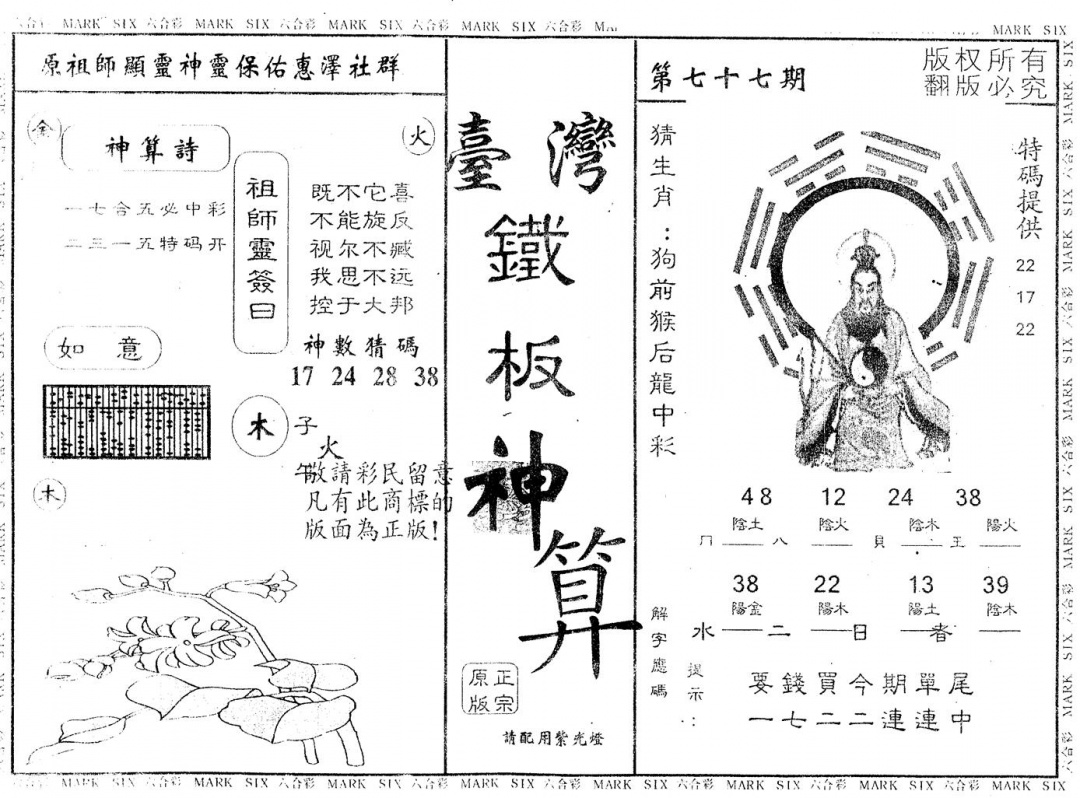 MARK SIX 六合彩 MARK SIX 六合彩 MARK SIX 六合彩 MARK SIX 六合彩
MARK SIX
原祖師顯靈神靈保佑惠澤社群
金
火
神算詩
一七合五必中彩
二三一五特码开
祖師靈簽曰
既不它喜
不能旋反
视尔不臧
我思不远
控于大邦
神數猜碼
17 24 28 38
如意
木
木
子
火
午
敬請彩民留意
凡有此商標的
版面為正版!
臺灣
鐵
板
神
算
正宗
原版
請配用紫光燈
第七十七期
版权所有
翻版必究
猜生肖:狗前猴后龍中彩
特碼提供
22
17
22
48 12 24 38
陰土 陰火 陰木 陽火
冂 八 貝 王
38 22 13 39
陽金 陽木 陽土 陰木
水 二 日 春
解字應碼
提示:
要錢買今期單尾
一七二二連連中
MARK SIX 六合彩 MARK SIX 六合彩 MARK SIX 六合彩 MARK SIX 六合彩 MARK SIX 六合彩 MARK SIX 六合彩 MARK SIX 六合彩 MARK SIX